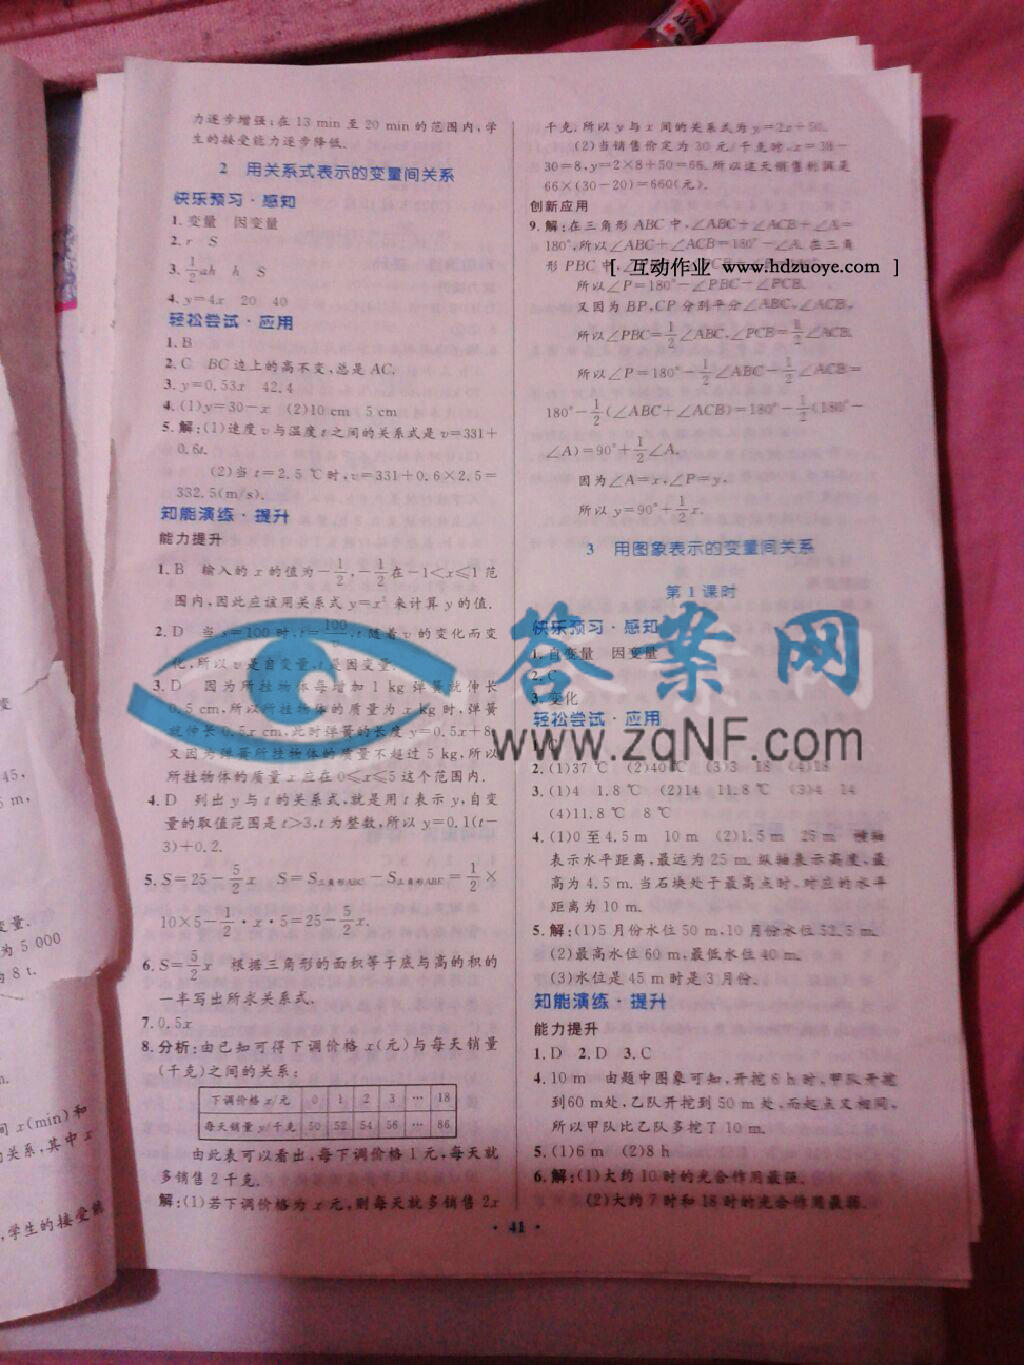 力逐步增强;在 13 min 至 20 min 的范围内,学
生的接受能力逐步降低.
2 用关系式表示的变量间关系
快乐预习·感知
1. 变量 因变量
2. r S
3. 1/2 ah h S
4. y=4x 20 40
轻松尝试·应用
1. B
2. C BC 边上的高不变,总是 AC.
3. y=0.53x 42.4
4. (1)y=30-x (2)10 cm 5 cm
5. 解:(1)速度 v 与温度 t 之间的关系式是 v=331+
0.6t.
(2)当 t=2.5 ℃时,v=331+0.6×2.5=
332.5(m/s).
知能演练·提升
能力提升
1. B 输入的 x 的值为-1/2,-1/2在-1<x≤1 范
围内,因此应该用关系式 y=x² 来计算 y 的值.
2. D 当 s=100 时,t=100/v,t 随着 v 的变化而变
化,所以 v 是自变量,t 是因变量.
3. D 因为所挂物体每增加 1 kg 弹簧就伸长
0.5 cm,所以所挂物体的质量为 x kg 时,弹簧
就伸长 0.5x cm,此时弹簧的长度 y=0.5x+8,
又因为弹簧所挂物体的质量不超过 5 kg,所以
所挂物体的质量 x 应在 0≤x≤5 这个范围内.
4. D 列出 y 与 t 的关系式,就是用 t 表示 y,自变
量的取值范围是 t>3,t 为整数,所以 y=0.1(t-
3)+0.2.
5. S=25-5/2 x S=S三角形ABC-S三角形ABE=1/2×
10×5-1/2·x·5=25-5/2 x.
6. S=5/2 x 根据三角形的面积等于底与高的积的
一半写出所求关系式.
7. 0.5x
8. 分析:由已知可得下调价格 x(元)与每天销量
(千克)之间的关系:
下调价格 x/元 0 1 2 3 … 18
每天销量 y/千克 50 52 54 56 … 86
由此表可以看出,每下调价格 1 元,每天就
多销售 2 千克.
解:(1)若下调价格为 x 元,则每天就多销售 2x
千克.所以 y 与 x 间的关系式为 y=2x+50.
(2)当销售价定为 30 元/千克时,x=38-
30=8,y=2×8+50=66.所以这天销售利润是
66×(30-20)=660(元).
创新应用
9. 解:在三角形 ABC 中,∠ABC+∠ACB+∠A=
180°,所以∠ABC+∠ACB=180°-∠A.在三角
形 PBC 中,
[ 互动作业 www.hdzuoye.com ]
所以∠P=180°-∠PBC-∠PCB.
又因为 BP,CP 分别平分∠ABC,∠ACB,
所以∠PBC=1/2∠ABC,∠PCB=1/2∠ACB.
所以∠P=180°-1/2∠ABC-1/2∠ACB=
180°-1/2(∠ABC+∠ACB)=180°-1/2(180°-
∠A)=90°+1/2∠A.
因为∠A=x,∠P=y,
所以 y=90°+1/2 x.
3 用图象表示的变量间关系
第 1 课时
快乐预习·感知
1. 自变量 因变量
2. C
3. 变化
答案网
www.zqNF.com
轻松尝试·应用
1. C
2. (1)37 ℃ (2)40 ℃ (3)3 18 (4)18
3. (1)4 1.8 ℃ (2)14 11.8 ℃ (3)4 14
(4)11.8 ℃ 8 ℃
4. (1)0 至 4.5 m 10 m (2)1.5 m 25 m 横轴
表示水平距离,最远为 25 m.纵轴表示高度,最
高为 4.5 m.当石块处于最高点时,对应的水平
距离为 10 m.
5. 解:(1)5 月份水位 50 m,10 月份水位 52.5 m.
(2)最高水位 60 m,最低水位 40 m.
(3)水位是 45 m 时是 3 月份.
知能演练·提升
能力提升
1. D 2. D 3. C
4. 10 m 由题中图象可知,开挖 6 h 时,甲队开挖
到60 m处,乙队开挖到 50 m 处,而起点又相同,
所以甲队比乙队多挖了 10 m.
5. (1)6 m (2)8 h
6. 解:(1)大约 10 时的光合作用最强.
(2)大约 7 时和 18 时的光合作用最弱.
· 41 ·
变
45,
5 m,
变量.
为 5 000
为 8 t.
m.
间 x(min)和
的关系,其中 x
,学生的接受能